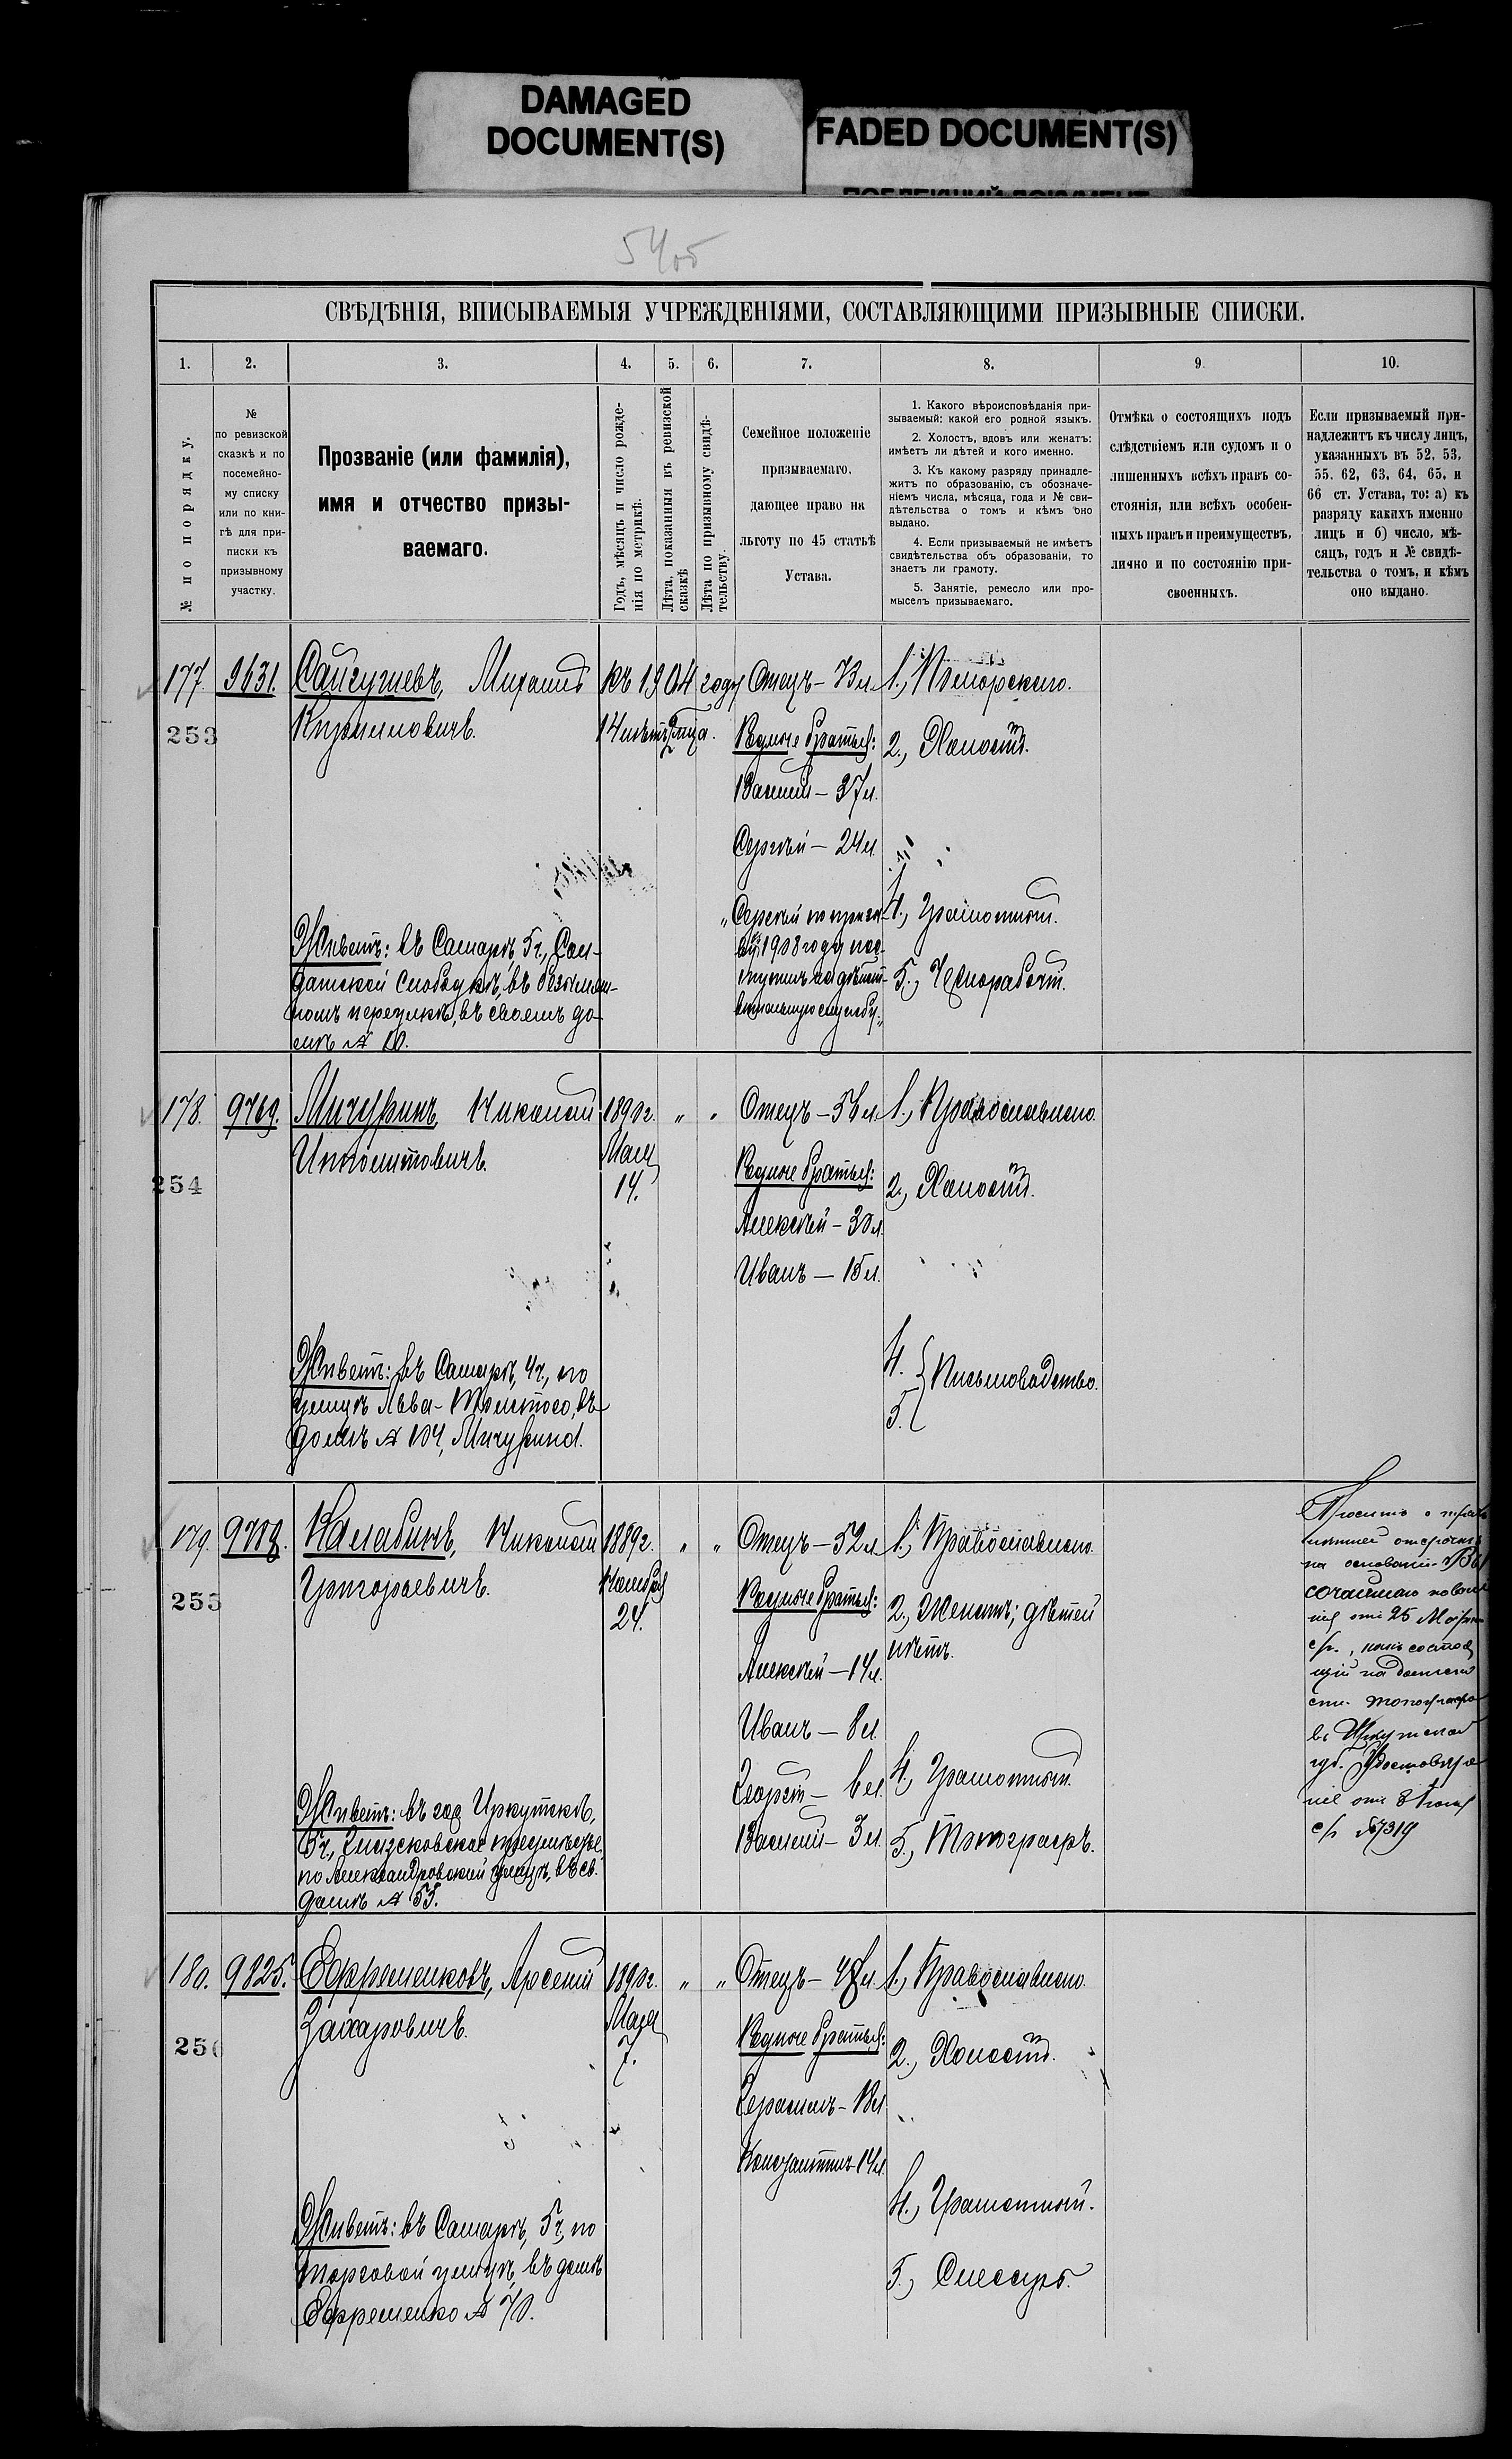 DAMAGED
DOCUMENT(S)
FADED DOCUMENT(S)
54об
СВѢДѢНІЯ, ВПИСЫВАЕМЫЯ УЧРЕЖДЕНІЯМИ, СОСТАВЛЯЮЩИМИ ПРИЗЫВНЫЕ СПИСКИ.
1. 2. 3. 4. 5. 6. 7. 8. 9. 10.
№ по порядку.
№
по ревизской
сказкѣ и по
посемейно-
му списку
или по кни-
гѣ для при-
писки къ
призывному
участку.
Прозваніе (или фамилія),
имя и отчество призы-
ваемаго.
Годъ, мѣсяцъ и число рожде-
нія по метрикѣ.
Лѣта, показанныя въ ревизской
сказкѣ
Лѣта по призывному свидѣ-
тельству.
Семейное положеніе
призываемаго,
дающее право на
льготу по 45 статьѣ
Устава.
1. Какого вѣроисповѣданія при-
зываемый: какой его родной языкъ.
2. Холостъ, вдовъ или женатъ:
имѣетъ ли дѣтей и кого именно.
3. Къ какому разряду принадле-
житъ по образованію, съ обозначе-
ніемъ числа, мѣсяца, года и № сви-
дѣтельства о томъ и кѣмъ оно
выдано.
4. Если призываемый не имѣетъ
свидѣтельства объ образованіи, то
знаетъ ли грамоту.
5. Занятіе, ремесло или про-
мыселъ призываемаго.
Отмѣка о состоящихъ подъ
слѣдствіемъ или судомъ и о
лишенныхъ всѣхъ правъ со-
стоянія, или всѣхъ особен-
ныхъ правъ и преимуществъ,
лично и по состоянію при-
своенныхъ.
Если призываемый при-
надлежитъ къ числу лицъ,
указанныхъ въ 52, 53,
55. 62, 63, 64, 65, и
66 ст. Устава, то: а) къ
разряду какихъ именно
лицъ и б) число, мѣ-
сяцъ, годъ и № свидѣ-
тельства о томъ, и кѣмъ
оно выдано.
177. 9631.
253
Сайгушевъ, Михаилъ
Кирилловичъ.
Живетъ: въ Самарѣ, 5ч., Сол-
датской слободкѣ, въ безымян-
номъ переулкѣ, въ своемъ до-
мѣ № 10.
Къ 1904 году
14 лѣтъ
Отецъ – 73 л.
Родные братья:
Василій – 37 л.
Сергѣй – 24 л.
„Сергѣй по призы-
ву 1908 году пос-
тупилъ на дѣйст-
вительную службу.„
2., Холостъ.
4., Грамотный.
5., Чернорабочій.
178. 9769.
254
Мичуринъ, Николай
Ипполитовичъ.
Живетъ: въ Самарѣ, 4ч., по
улицѣ Льва-Толстого, въ
домѣ № 104, Мичурина.
1890 г.
Мая
14.
„ „
Отецъ – 56 л.
Родные братья:
Алексѣй – 30 л.
Иванъ – 15 л.
1., Православнаго.
2., Холостъ.
4.
5. Письмоводство.
179.
255
Калабинъ, Николай
Григорьевичъ.
Живетъ: въ гор. Иркутскѣ,
Глазковское предмѣстье,
по Александровской улицѣ, въ св.
домѣ № 55.
1889 г.
Ноября
24.
„ „
Отецъ – 52 л.
Родные братья:
Алексѣй – 14 л.
Иванъ – 8 л.
Георгій – 6 л.
Василій – 3 л.
1., Православнаго.
2., Женатъ; дѣтей
нѣтъ.
4., Грамотный.
5., Топографъ.
на основаніи
отъ 25 Марта
с/г., какъ состоя
щій на должно
сти топографа
въ Иркутской
губ. Удостовѣре
ніе отъ 8 Іюля
с/г №7319
180. 9825.
256
Ефременковъ, Арсеній
Захаровичъ.
Живетъ: въ Самарѣ, 5ч., по
Торговой улицѣ, въ домѣ
Ефременко № 70.
1890 г.
Мая
7.
„ „
Отецъ – 48 л.
Родные братья:
Герасимъ – 18 л.
Константинъ – 14 л.
1., Православнаго.
2., Холостъ.
4., Грамотный.
5., Слесарь.